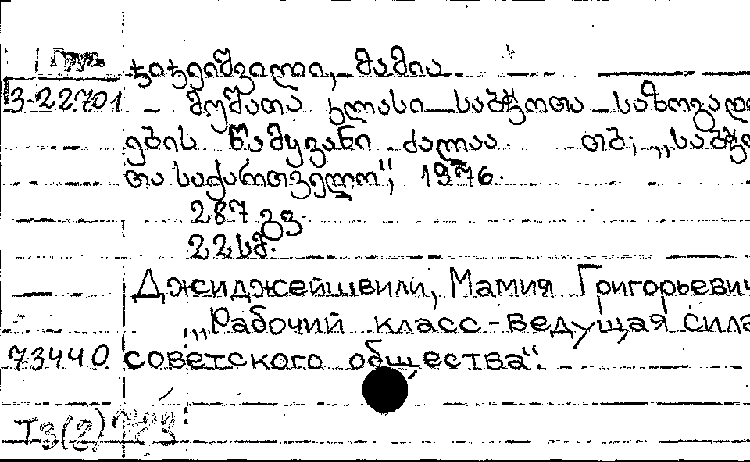 Груз.
ჯიჯეიშვილი, მამია
3-22.701 მუშათა კლასი საბჭოთა საზოგადო
ების წამყვანი ძალაა თბ; „საბჭო
თა საქართველო“, 1976.
287 გვ.
22 სმ.
Джиджейшвили, Мамия Григорьевич
„Рабочий класс-ведущая сила
73440 советского общества“.
Т3(2)